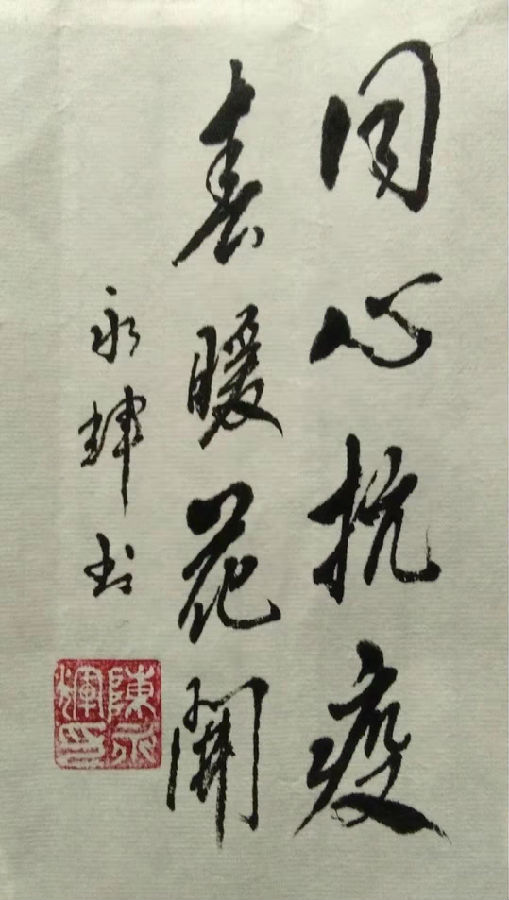 同心抗疫
春暖花開
永輝书
陳永輝印